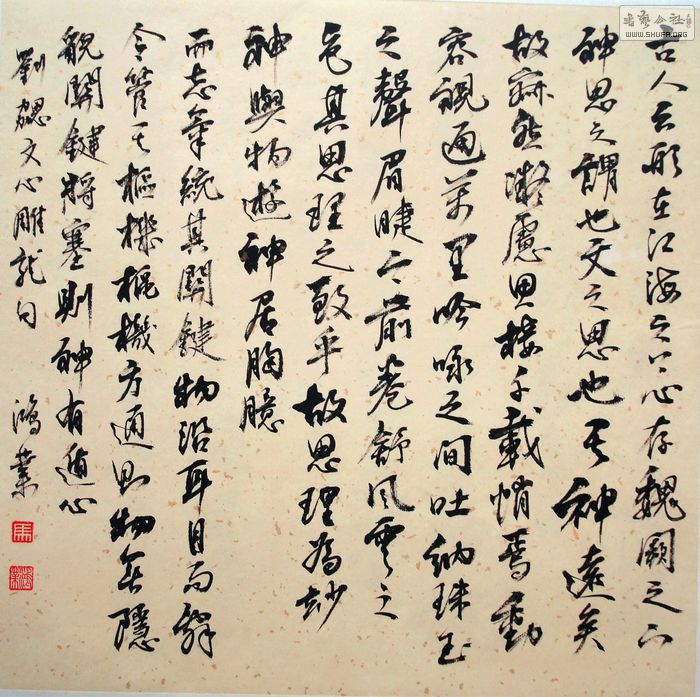 古人云形在江海之上心存魏闕之下
神思之謂也文之思也其神遠矣
故寂然凝慮思接千載悄焉動
容視通萬里吟咏之間吐納珠玉
之聲眉睫之前卷舒風雲之
色其思理之致乎故思理為妙
神與物遊神居胸臆
而志氣統其關鍵物沿耳目而辭
令管其樞機樞機方通則物無隱
貌關鍵將塞則神有遁心
劉勰文心雕龍句 鴻業
書藝公社
WWW.SHUFA.ORG